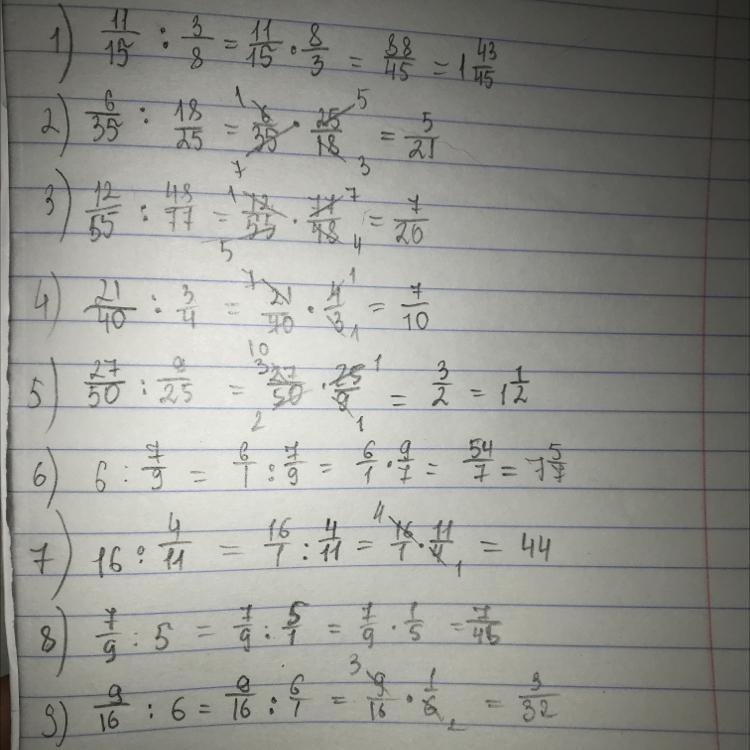 1) 11/15 : 3/8 = 11/15 · 8/3 = 88/45 = 1 43/45
2) 6/35 : 18/25 = 6/35 · 25/18 = 5/21
3) 12/55 : 48/77 = 12/55 · 77/48 = 7/20
4) 21/40 : 3/4 = 21/40 · 4/3 = 7/10
5) 27/50 : 9/25 = 27/50 · 25/9 = 3/2 = 1 1/2
6) 6 : 7/9 = 6/1 : 7/9 = 6/1 · 9/7 = 54/7 = 7 5/7
7) 16 : 4/11 = 16/1 : 4/11 = 16/1 · 11/4 = 44
8) 7/9 : 5 = 7/9 : 5/1 = 7/9 · 1/5 = 7/45
9) 9/16 : 6 = 9/16 : 6/1 = 9/16 · 1/6 = 3/32